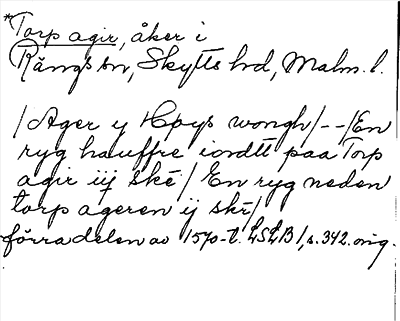 *Torp agir, åker i
Rängs sn, Skytts hrd, Malm. l.
/Ager y Hpys wongh/--/En
ryg hauffre iordtt paa Torp
agir iij skē/ En ryg neden
torp ageren ij skē/
förra delen av 1570-t. LSLB 1, s. 342. orig.